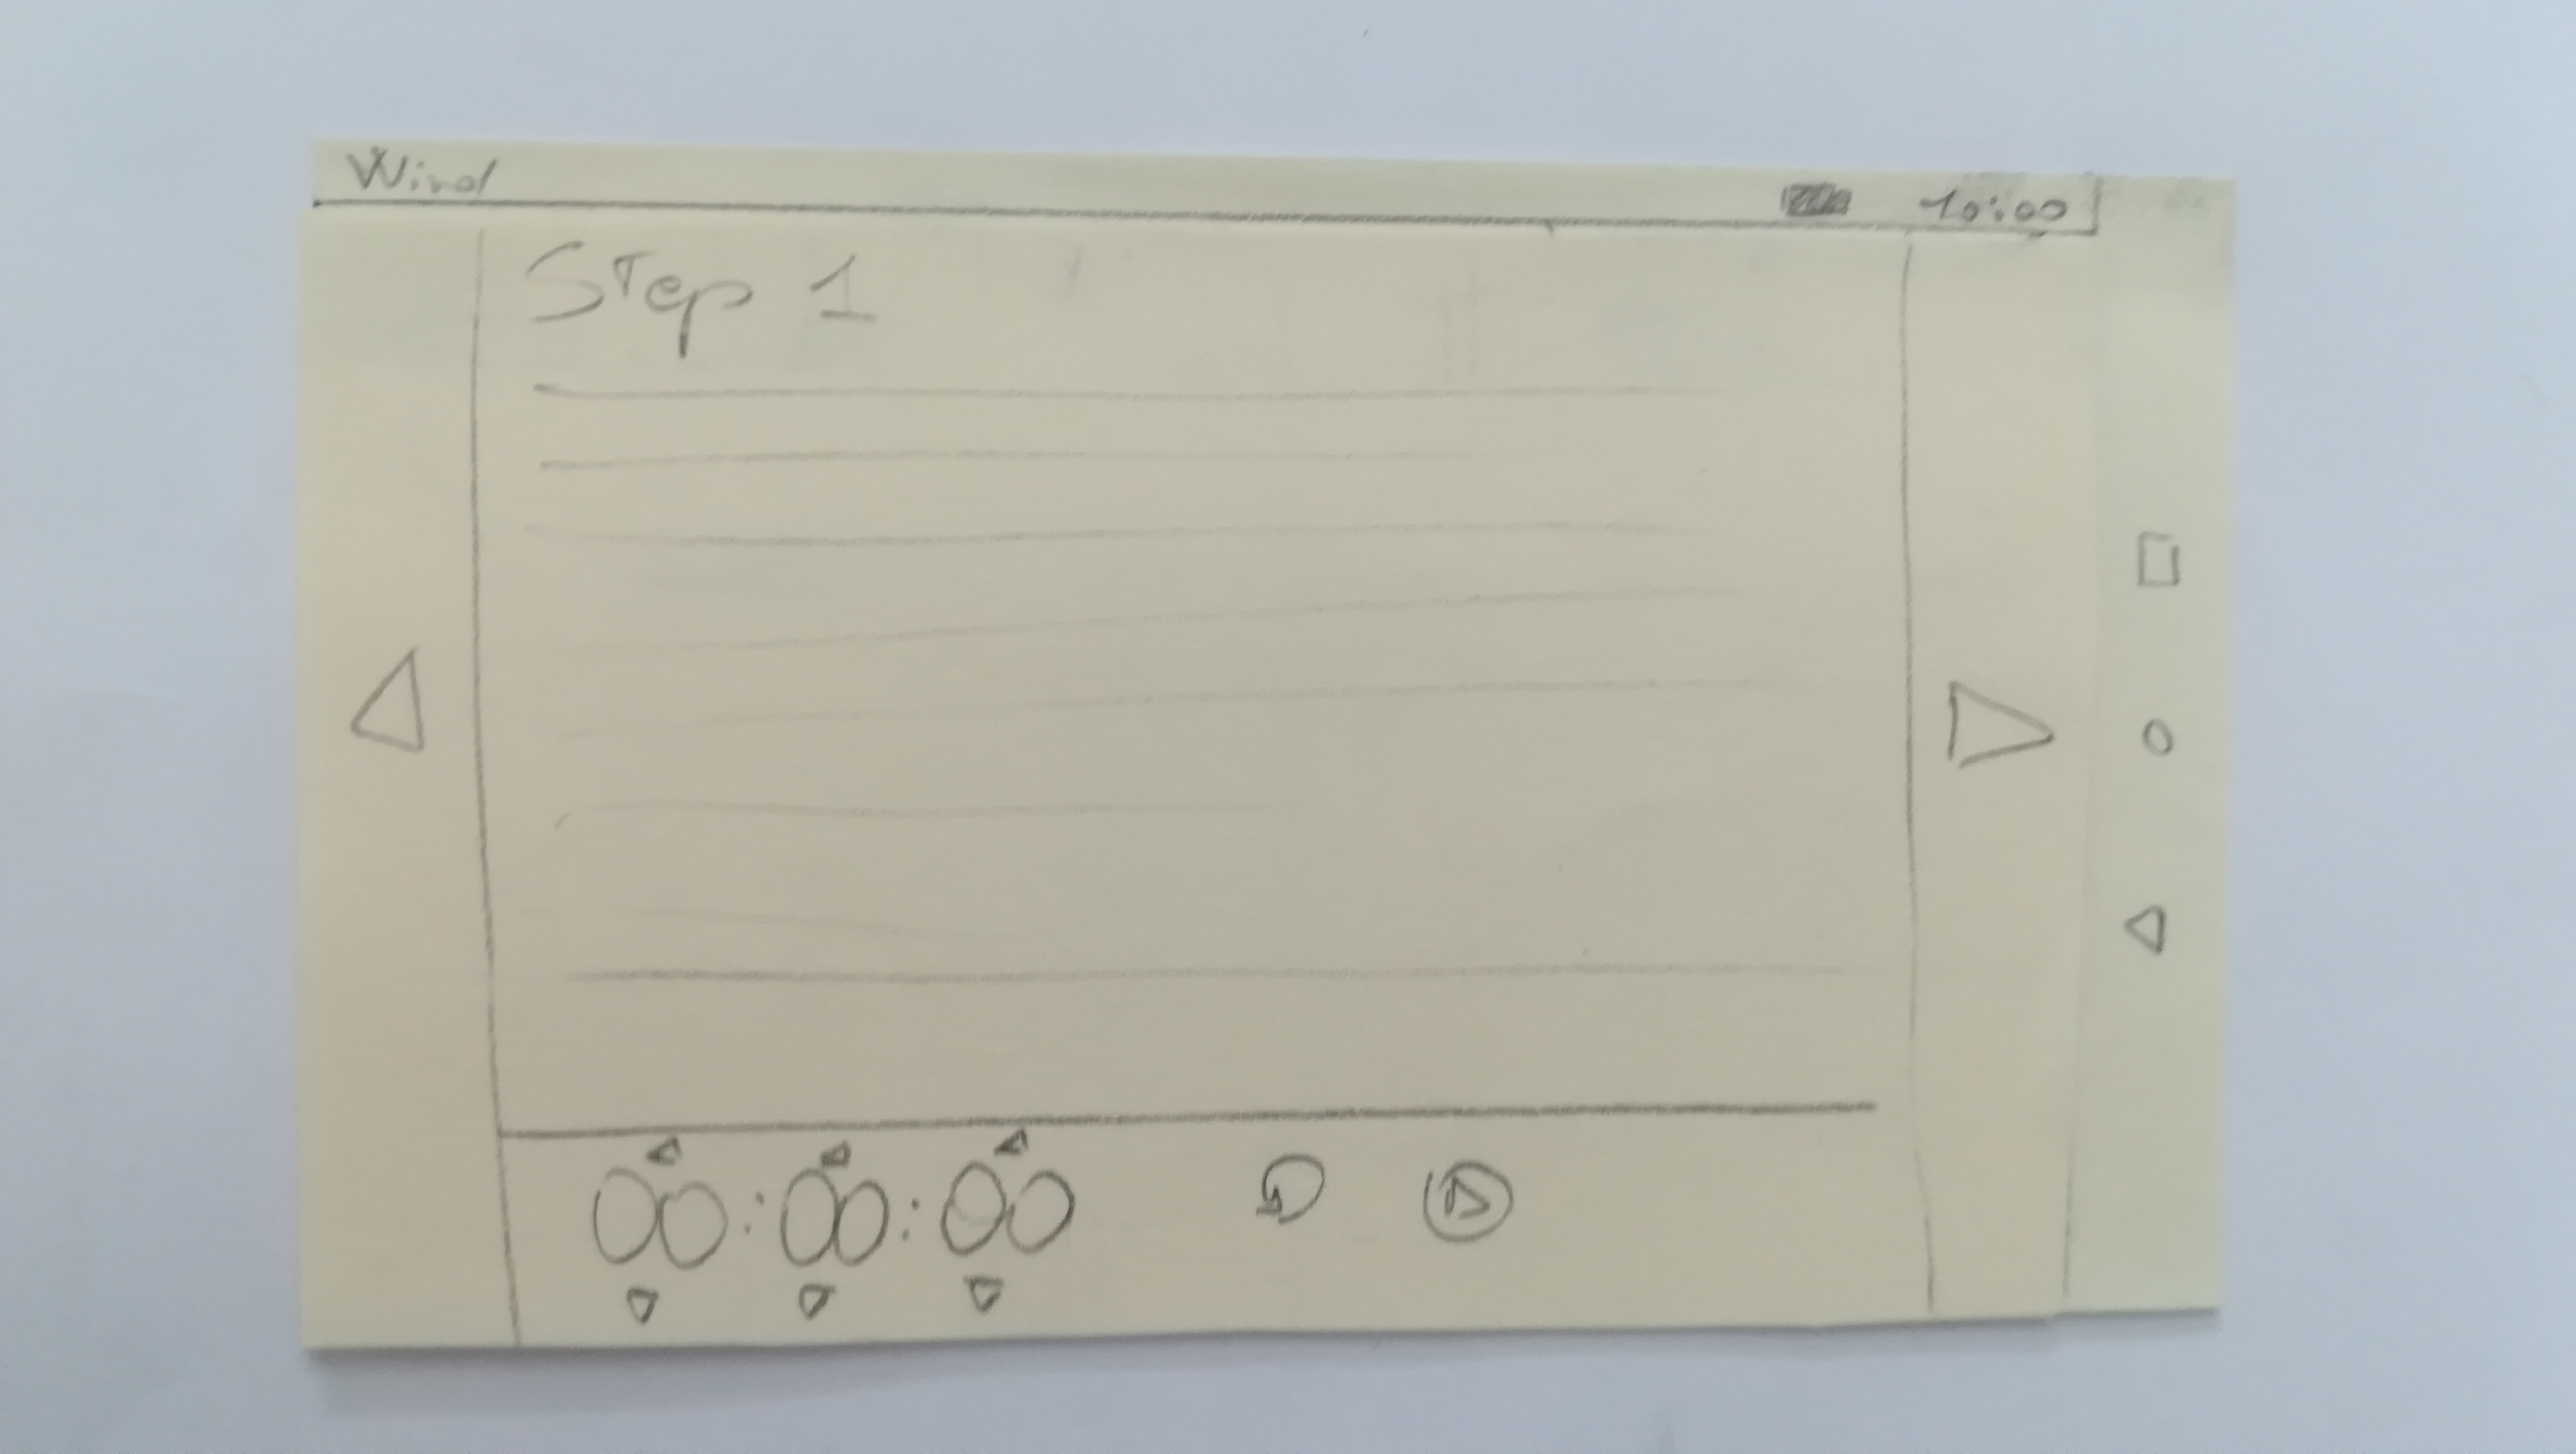 Wind
10:00
Step 1
00:00:00